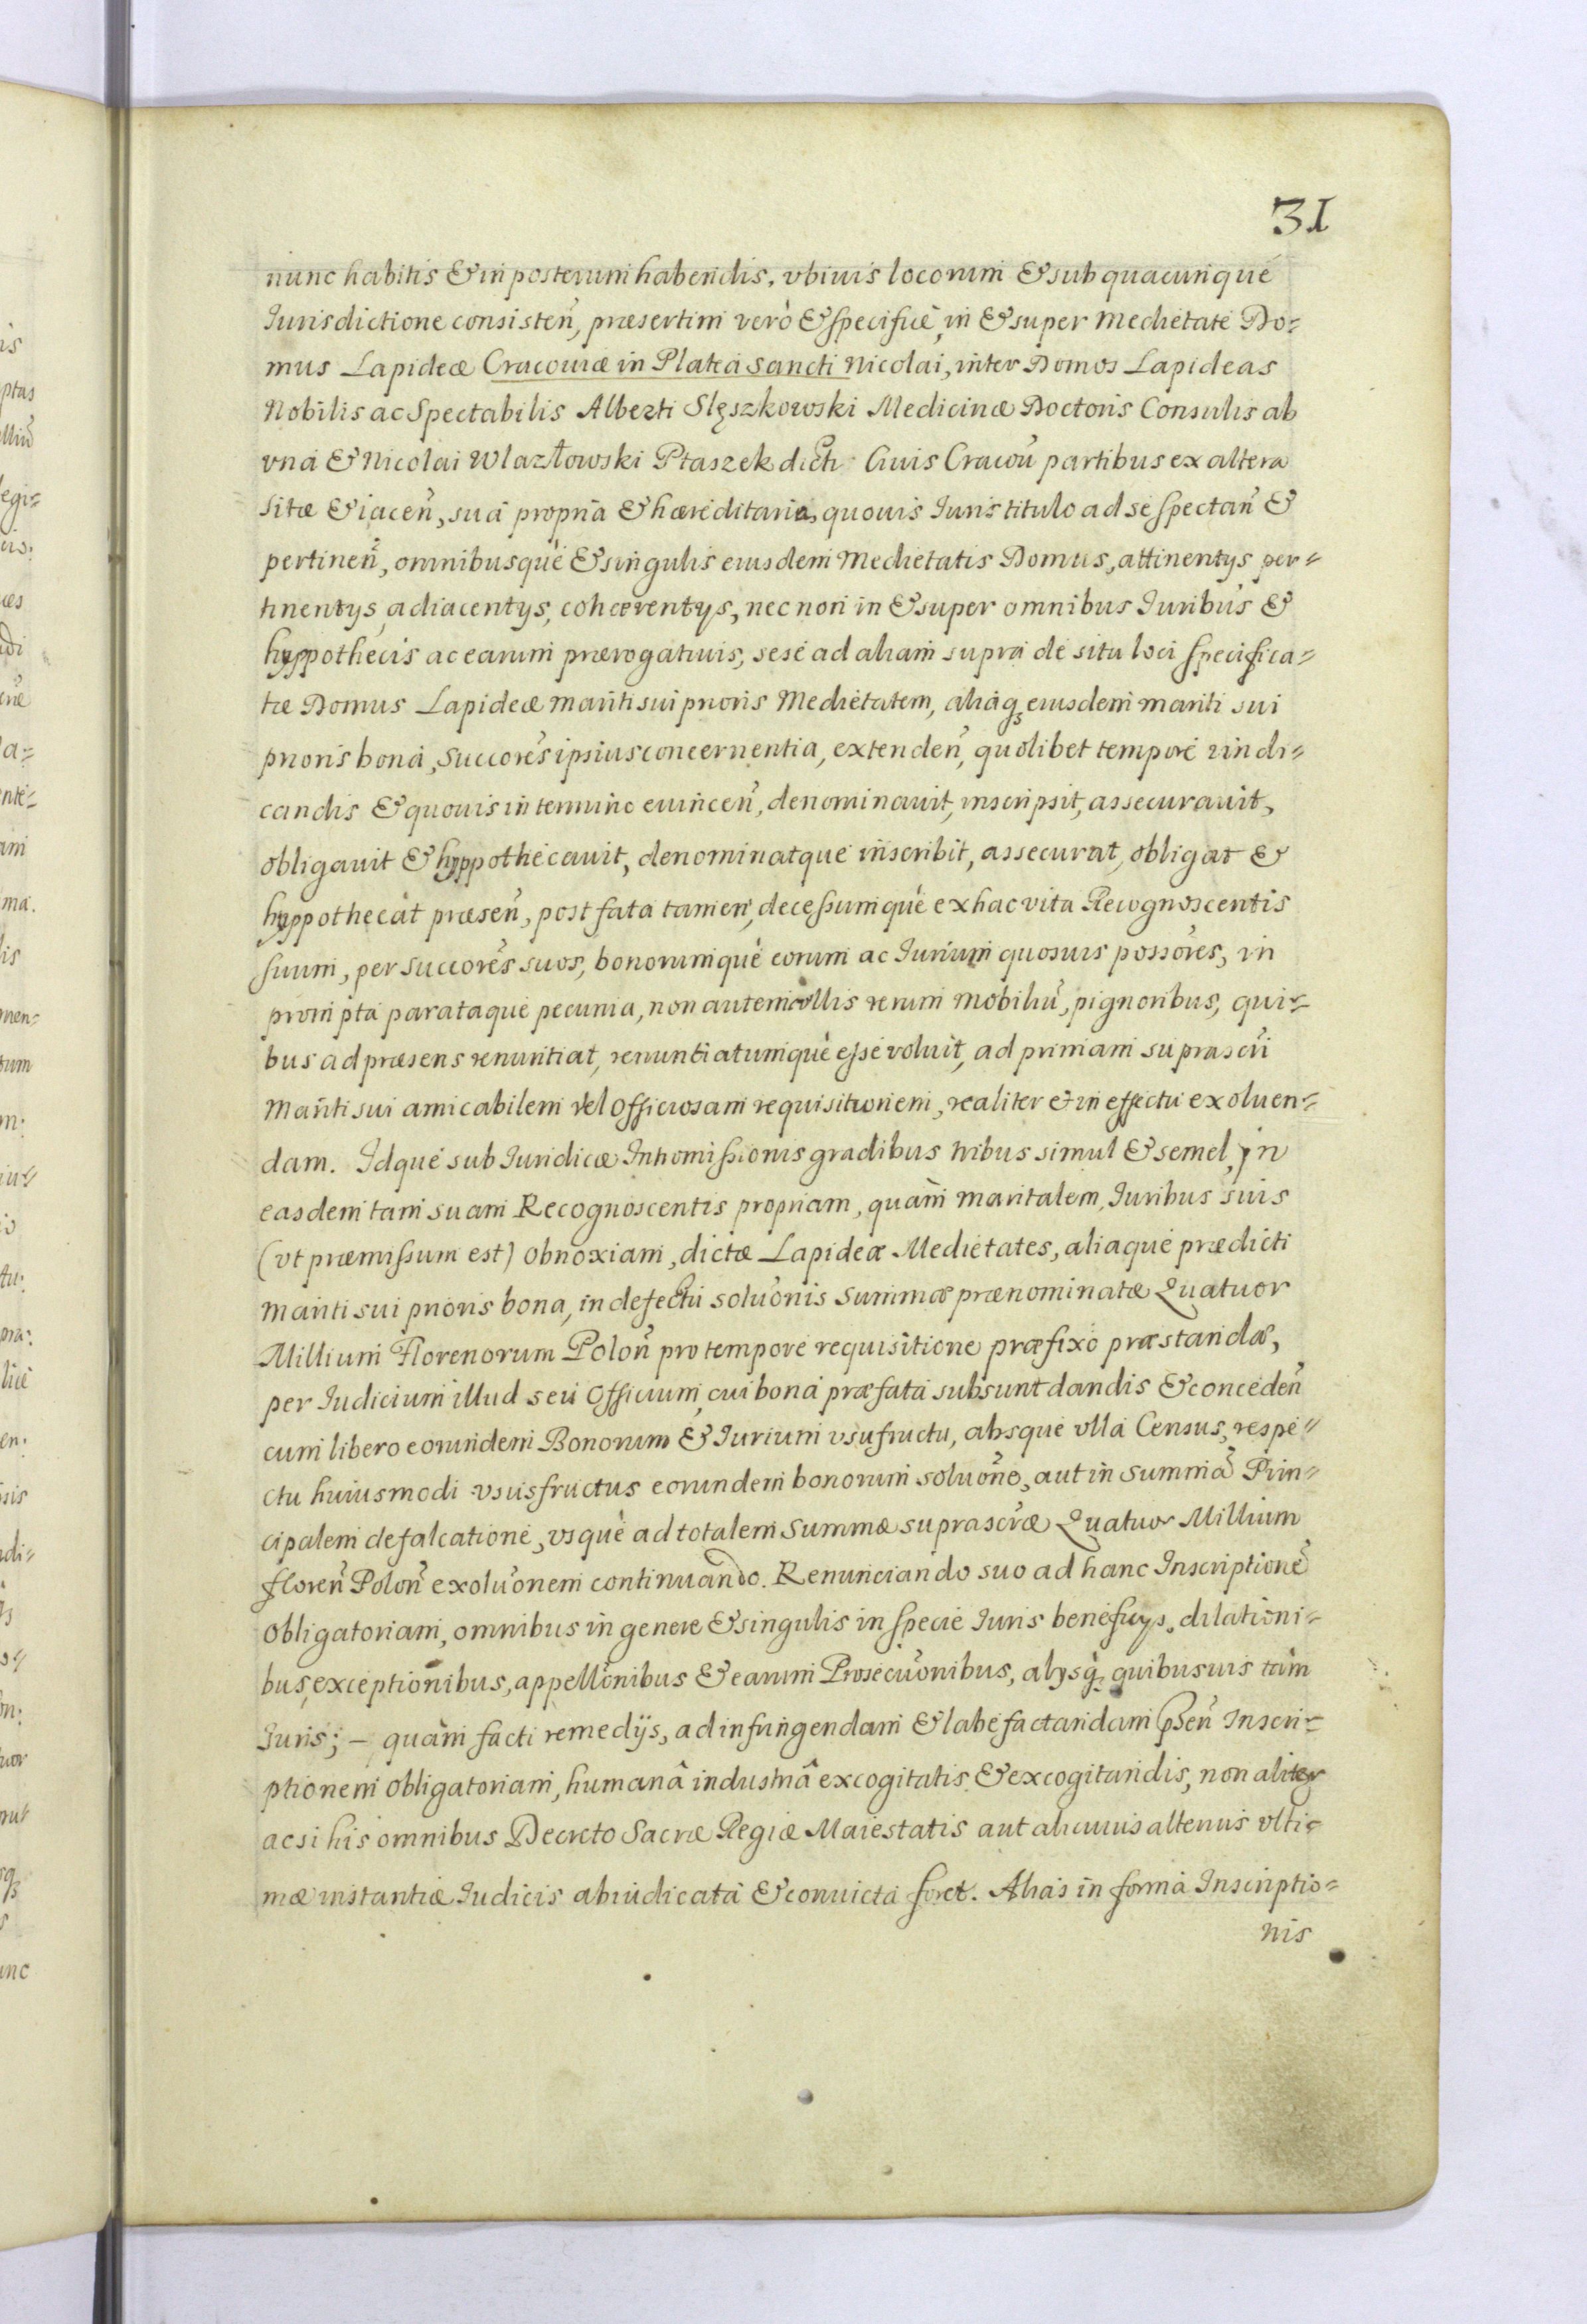 31
nunc habitis & in posterum habendis, vbiuis locorum & sub quacunque
Iurisdictione consisten̄, præsertim verò & specificè, in & super Medietate Do=
mus Lapideæ Cracouiæ in Platea Sancti Nicolai, inter Domos Lapideas
Nobilis ac Spectabilis Alberti Slęszkowski Medicinæ Doctoris Consulis ab
vna & Nicolai Wlazłowski Ptaszek dicti Ciuis Cracou̅ partibus ex altera
sitæ & iacen̄, sua propria & hæreditaria, quouis Iuris titulo ad se spectan̄ &
pertinen̄, omnibusquè & singulis eiusdem Medietatis Domus, attinentys per=
tinentys, adiacentys, cohærentys, nec non in & super omnibus Iuribus &
hyppothecis ac earum prærogatiuis, sese ad aliam supra de situ loci specifica=
tæ Domus Lapideæ mariti sui prioris Medietatem, aliaq₃ eiusdem mariti sui
prioris bona, succores̄ ipsius concernentia, extenden̄, quolibet tempore vindi=
candis & quouis in termino euincen̄, denominauit, inscripsit, assecurauit,
obligauit & hyppothecauit, denominatque inscribit, assecurat, obligat &
hyppothecat præsen̄, post fata tamen, decessumquè ex hac vita Recognoscentis
suum, per succores̄ suos, bonorumquè eorum ac Iurium quosuis possores̄, in
prompta parataque pecunia, non autem vllis rerum mobiliū, pignoribus, qui=
bus ad præsens renuntiat, renuntiatumquè esse voluit, ad primam suprascri̅
Mariti sui amicabilem vel officiosam requisitionem, realiter & in effectu exoluen=
dam. Idque sub Iuridicæ Intromissionis gradibus tribus simul & semel, in
easdem tam suam Recognoscentis propriam, quàm maritalem, Iuribus suis
(vt præmissum est) obnoxiam, dictæ Lapideæ Medietates, aliaque prædicti
mariti sui prioris bona, in defectu soluo̅nis summæ prænominatæ Quatuor
Millium Florenorum Polon̄ pro tempore requisitione præfixo præstandæ,
per Iudicium illud seu Officium, cui bona præfata subsunt dandis & conceden̄
cum libero eorundem Bonorum & Iurium vsufructu, absque vlla Census, respe=
ctu huiusmodi vsusfructus eorundem bonorum soluo̅ne, aut in summā Prin=
cipalem defalcatione, vsquè ad totalem summæ suprascræ̅ Quatuor Millium
floren̄ Polon̄ exoluo̅nem continuando. Renunciando suo ad hanc Inscriptionē
obligatoriam, omnibus in genere & singulis in specie Iuris beneficys, dilationi=
bus, exceptionibus, appello̅nibus & earum Prosecuo̅nibus, alysq₃ quibusuis tàm
Iuris; – quàm facti remedijs, ad infringendam & labefactandam p̅sen̄ Inscri=
ptionem obligatoriam, humanâ industriâ excogitatis & excogitandis, non aliter
ac si his omnibus Decreto Sacræ Regiæ Maiestatis aut alicuius alterius vlti=
mæ instantiæ Iudicis abiudicata & conuicta foret. Alias in forma Inscriptio=
nis